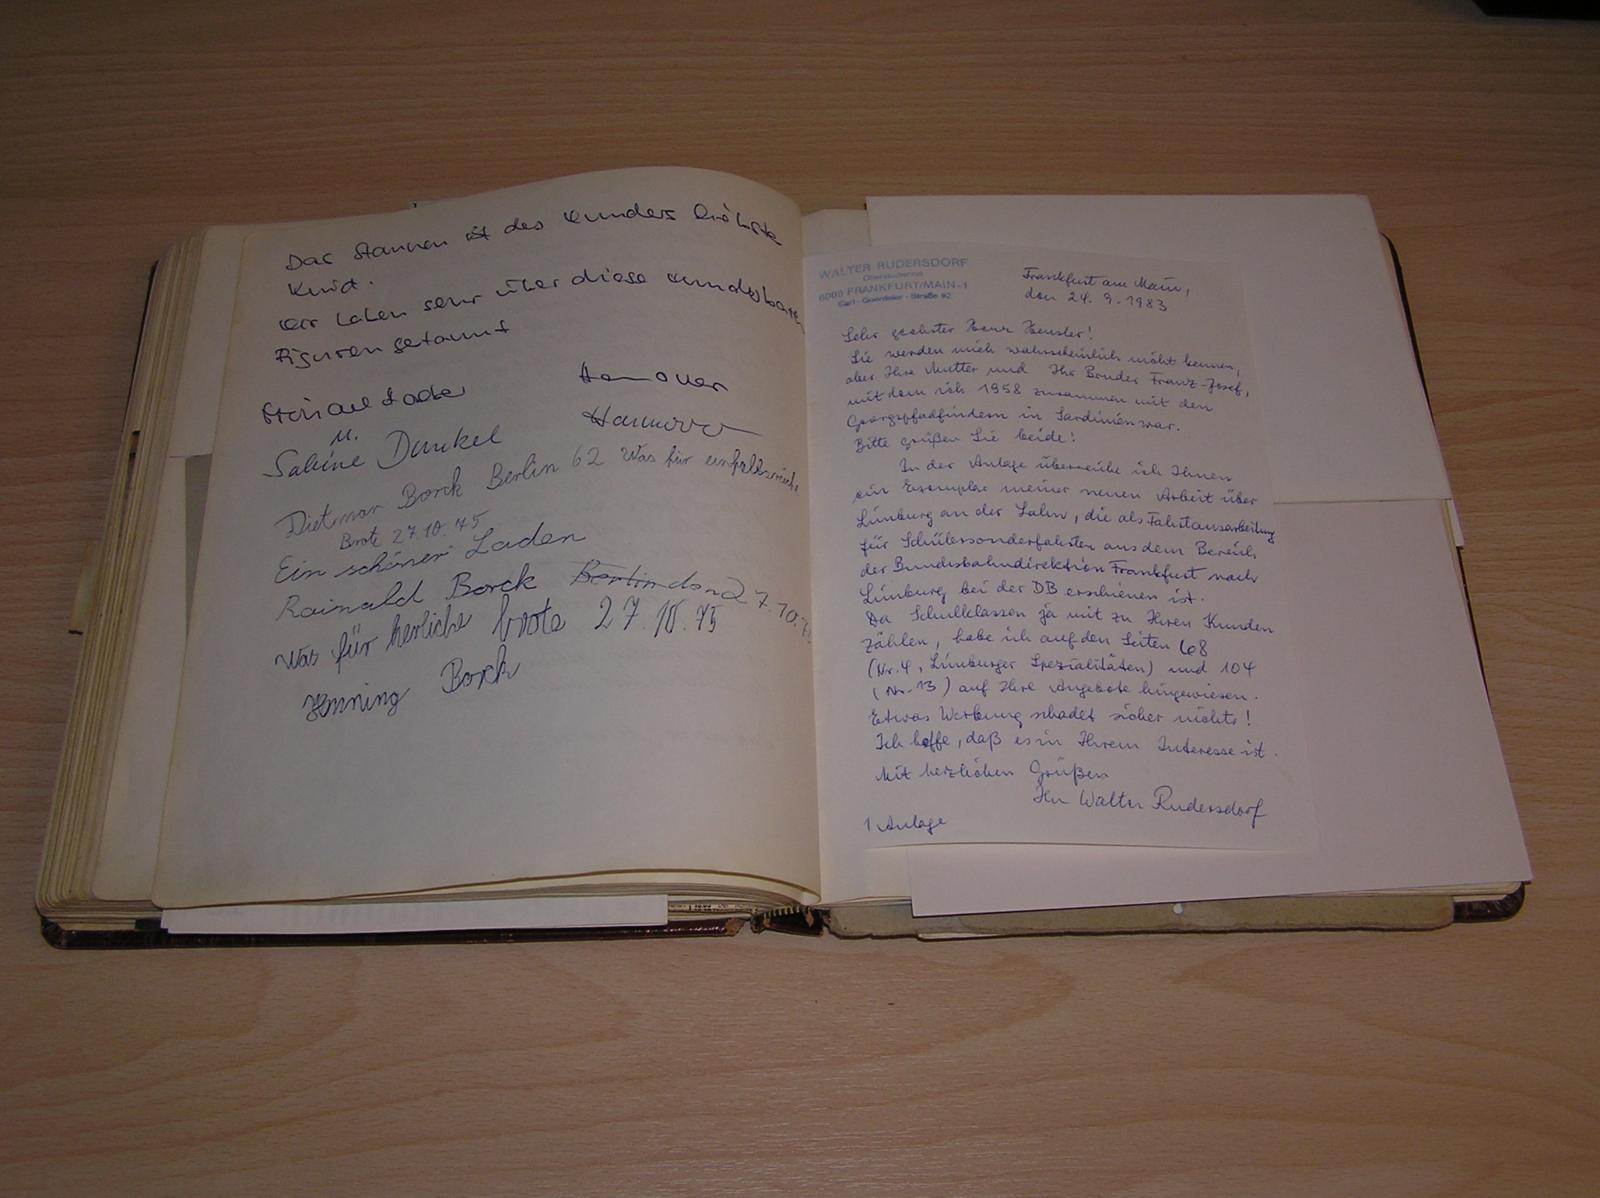 Das Staunen ist des Wunders liebste
Kind.
Wir haben sehr über diese wunderbaren
Figuren gestaunt
Hannover
u.
Hannover
Sabine Dunkel
Dietmar Borck Berlin 62 Was für einfallsreiche
Brote 27.10.75
Ein schöner Laden
Rainald Borck Berlin den 27.10.75
Was für herliche brote 27.10.75
Henning Borck
WALTER RUDERSDORF
6000 FRANKFURT/MAIN-1
Carl-Goerdeler-Straße 92
Frankfurt am Main,
den 24.9.1983
Sehr geehrter Herr Hensler!
Sie werden mich wahrscheinlich nicht kennen,
aber Ihre Mutter und Ihr Bruder Franz-Josef,
mit dem ich 1958 zusammen mit den
Georgspfadfindern in Sardinien war.
Bitte grüßen Sie beide!
In der Anlage überreiche ich Ihnen
ein Exemplar meiner neuen Arbeit über
Limburg an der Lahn, die als Fahrtausarbeitung
für Schülersonderfahrten aus dem Bereich
der Bundesbahndirektion Frankfurt nach
Limburg bei der DB erschienen ist.
Da Schulklassen ja mit zu Ihren Kunden
zählen, habe ich auf den Seiten 68
(Nr. 4, Limburger Spezialitäten) und 104
(Nr. 13) auf Ihre Angebote hingewiesen.
Etwas Werbung schadet sicher nichts!
Ich hoffe, daß es in Ihrem Interesse ist.
Mit herzlichen Grüßen
Ihr Walter Rudersdorf
1 Anlage